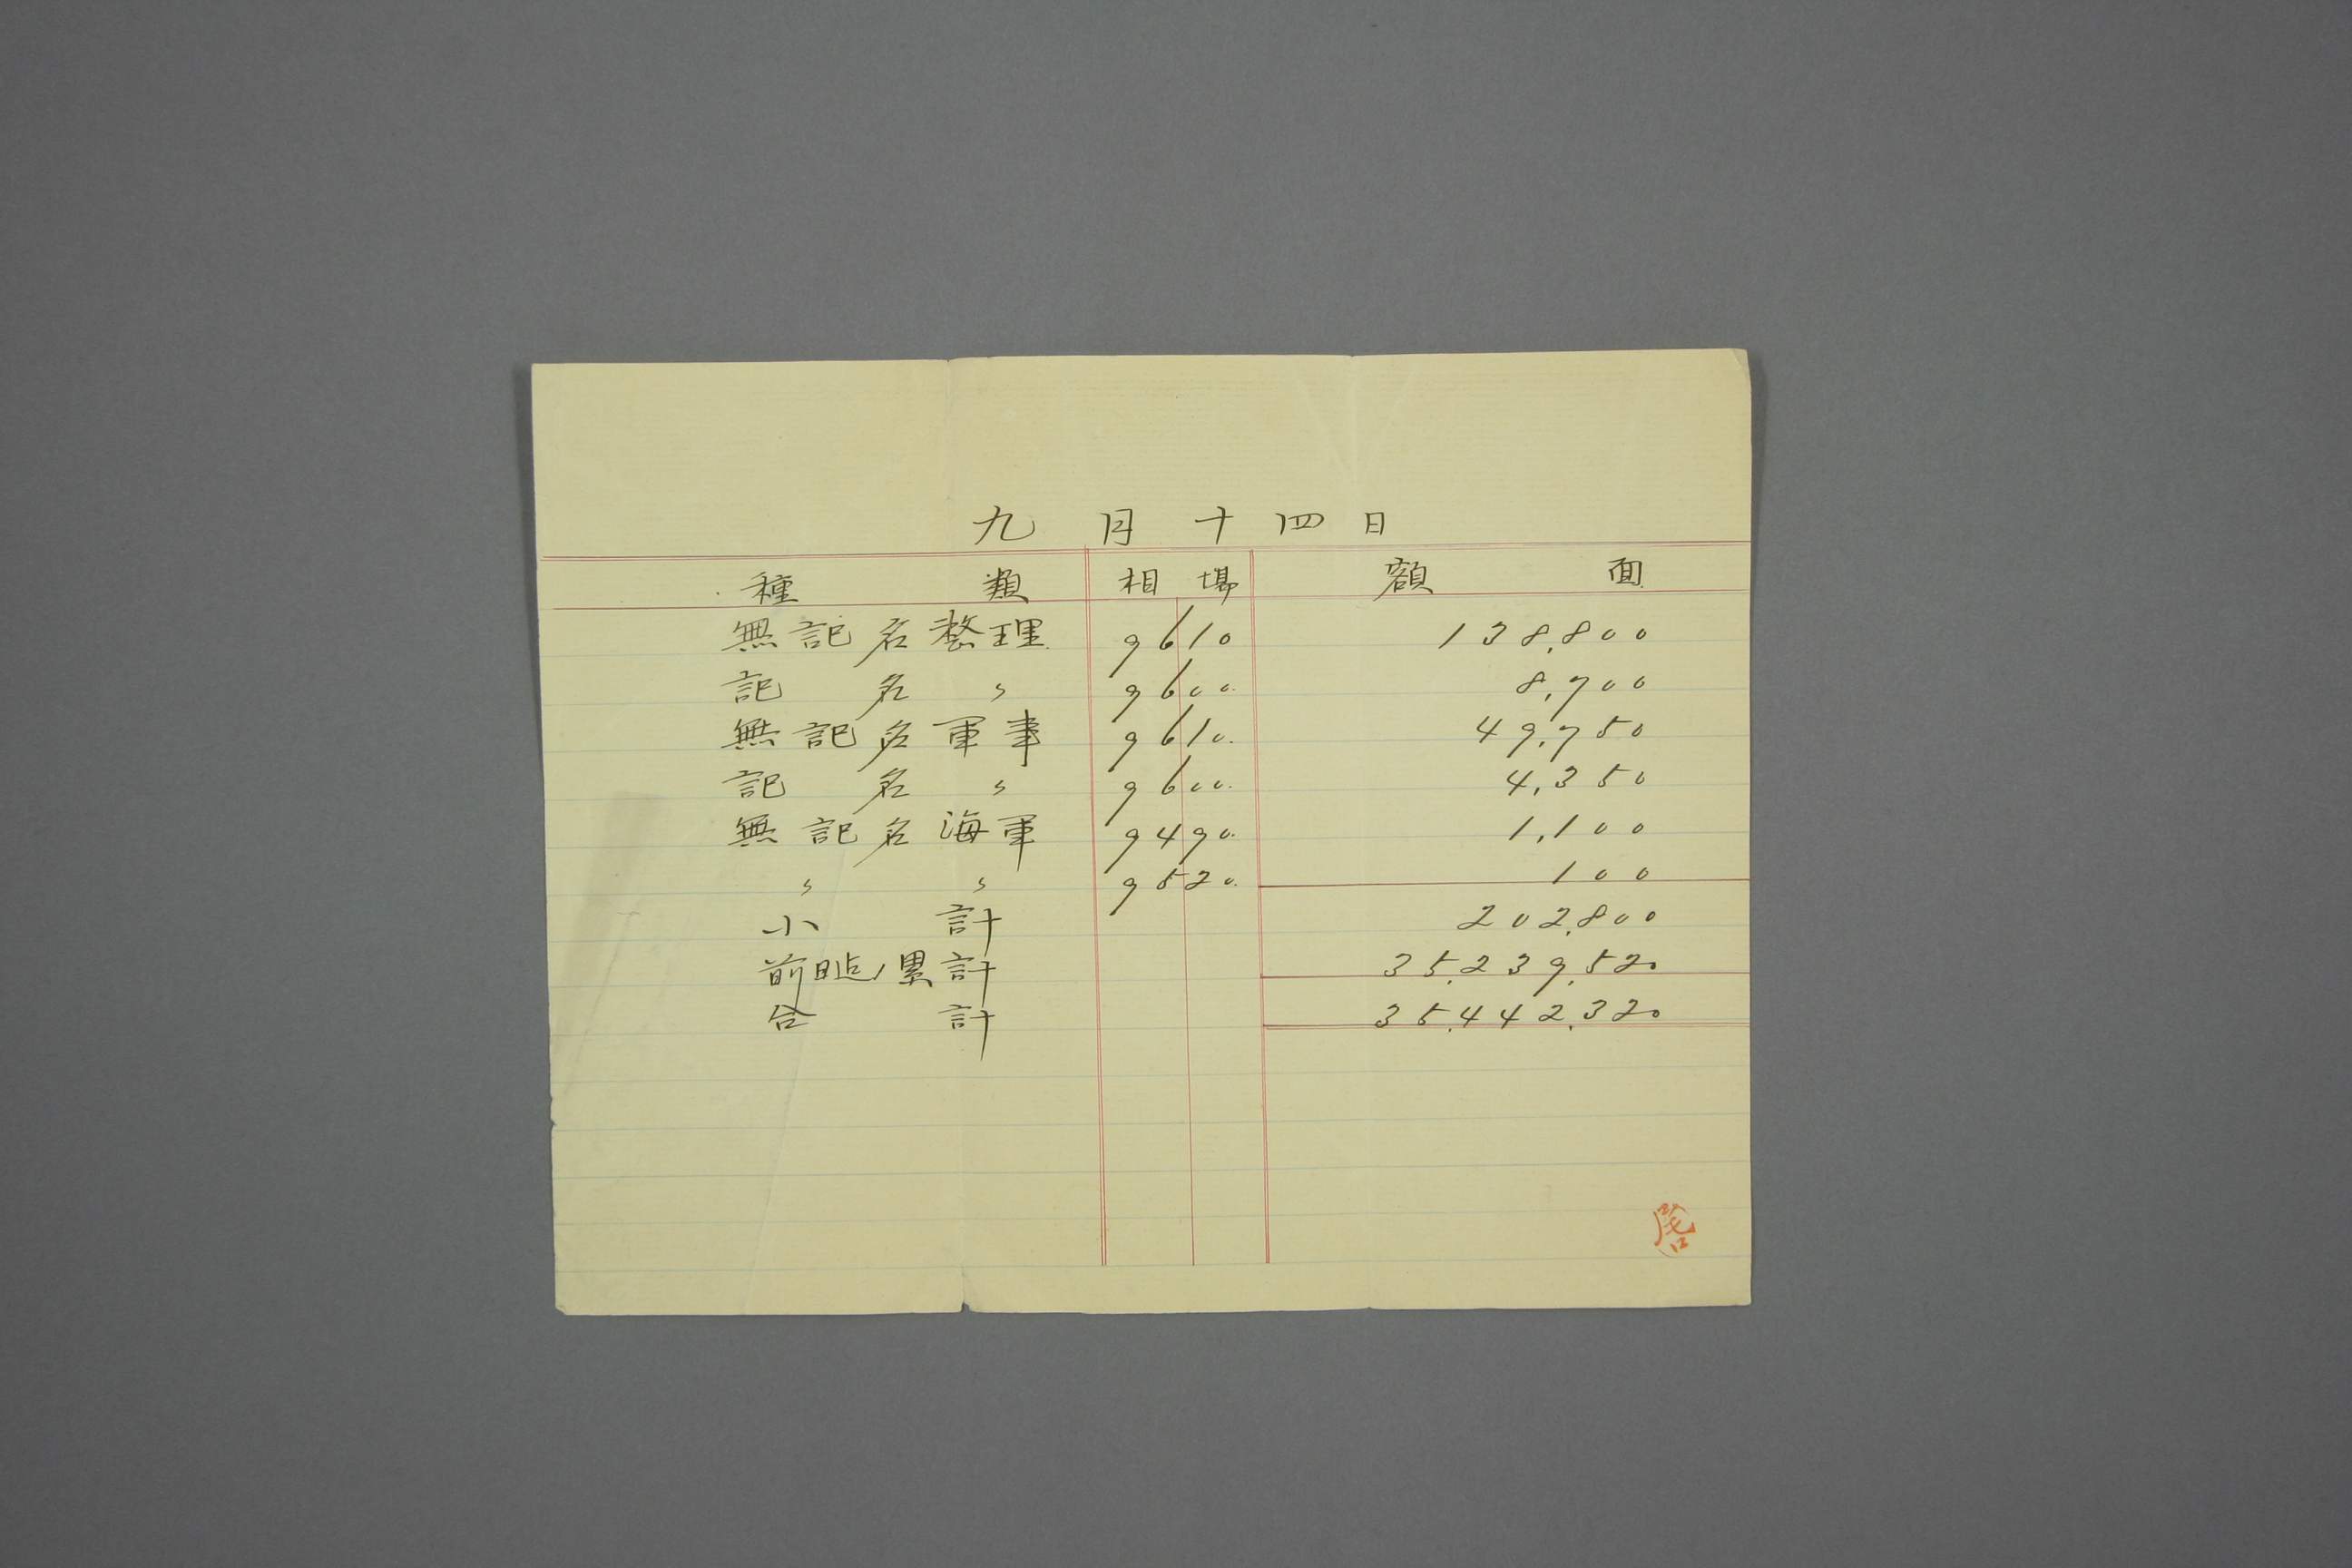 九月十四日
種類 相場 額面
無記名整理 96 10 138,800
記名〃 96 00 8,700
無記名軍事 96 10 49,750
記名〃 96 00 4,350
無記名海軍 94 90 1,100
〃 〃 95 20 100
小計 202,800
前日迠ノ累計 35,239,520
合計 35,442,320